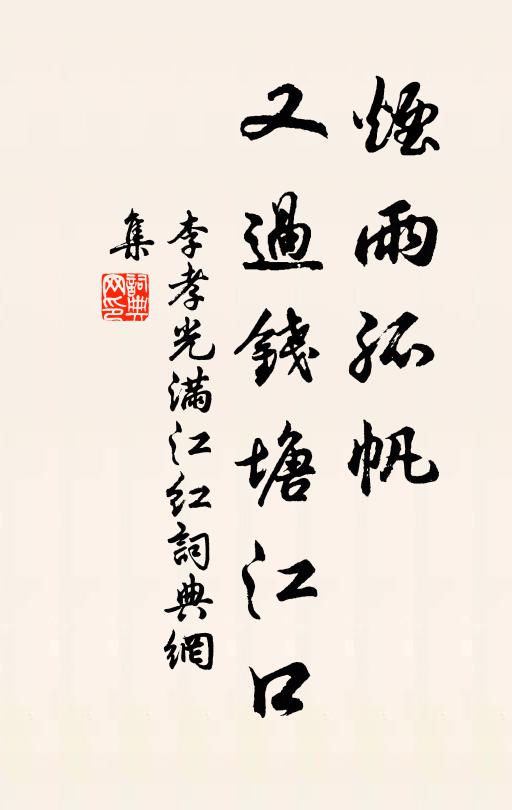 煙雨孤帆
又過錢塘江口
李孝光滿江紅詞典網
集
詞典
网印